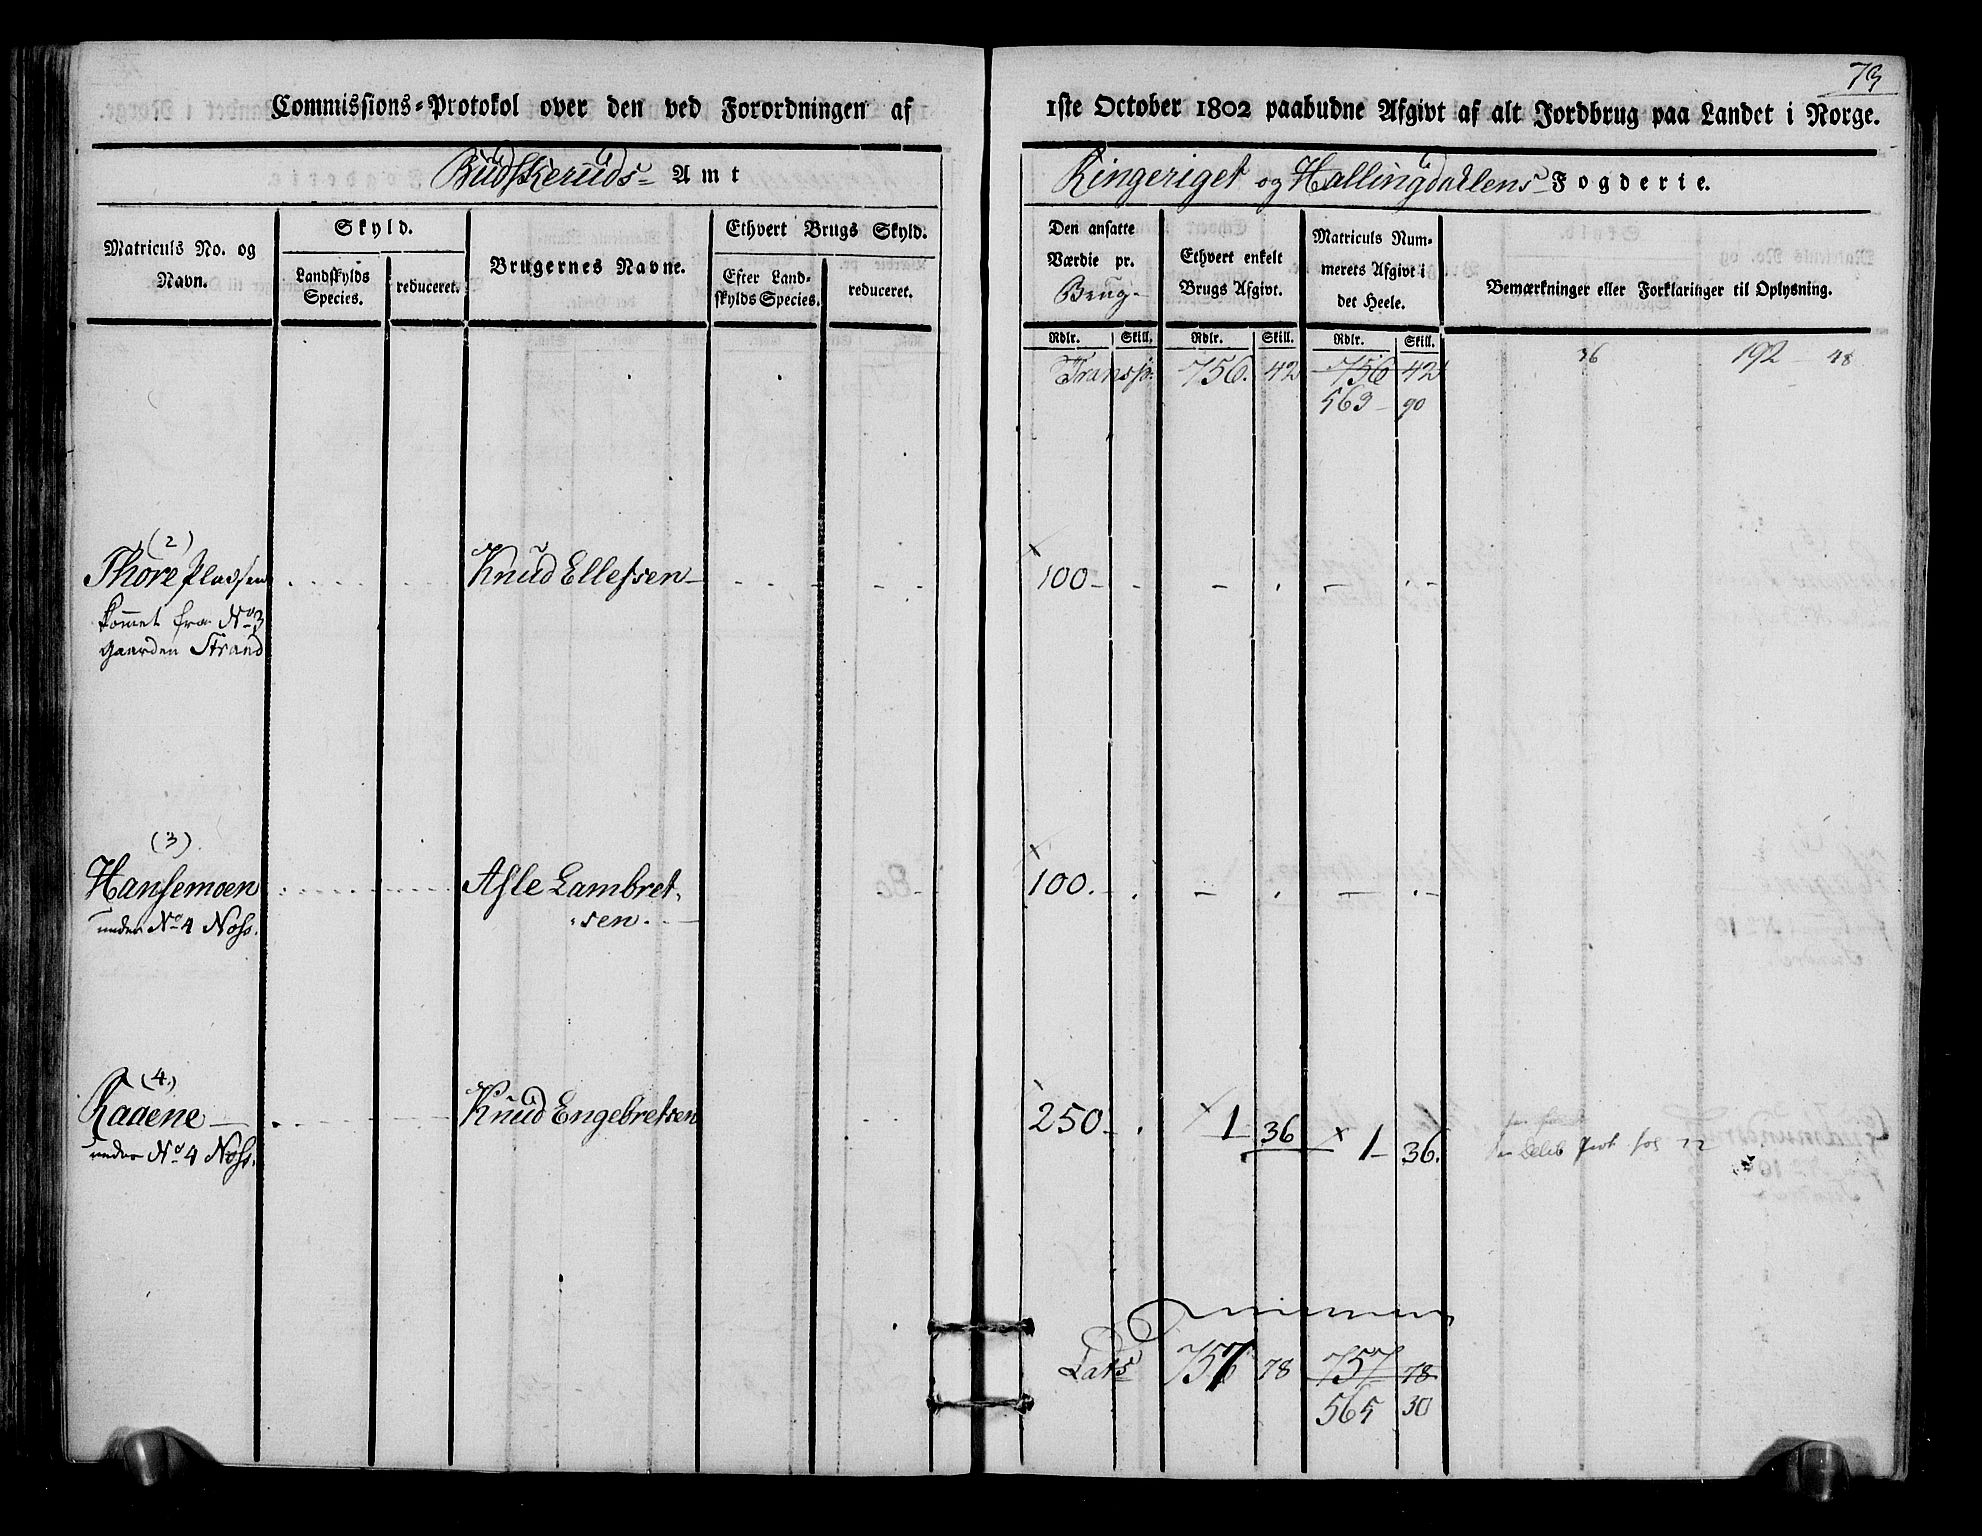 73
Commissions-Protokol over den ved Forordningen af 1ste October 1802 paabudne Afgivt af alt Jordbrug paa Landet i Norge.
Budskeruds- Amt
Ringeriget og Hallingdahlens- Fogderie.
Matriculs No. og Navn.
Skyld.
Landskylds Species.
reduceret.
Brugernes Navne.
Ethvert Brugs Skyld.
Efter Landskylds Species.
reduceret.
Den ansatte Værdie pr. Brug-
Ethvert enkelt Brugs Afgivt.
Matriculs Nummerets Afgivt i det Heele.
Bemærkninger eller Forklaringer til Oplysning.
Rdlr. Skill. Rdlr. Skill. Rdlr. Skill.
Transp. 756. 42 756 42
563 - 90
36 192 - 48
(2)
Thore Pladsen Knud Ellefsen - 100 -
kommet fra No 3
Gaarden Strand
(3)
Hansemoen Asle Lambret-
sen. 100. -
under No 4 Noss.
(4)
Raaene Knud Engebretsen 250 - 1 36 1 - 36.
under No 4 Noss.
Deleb Prot fol 22
Lats 757 78 757 78
565 30